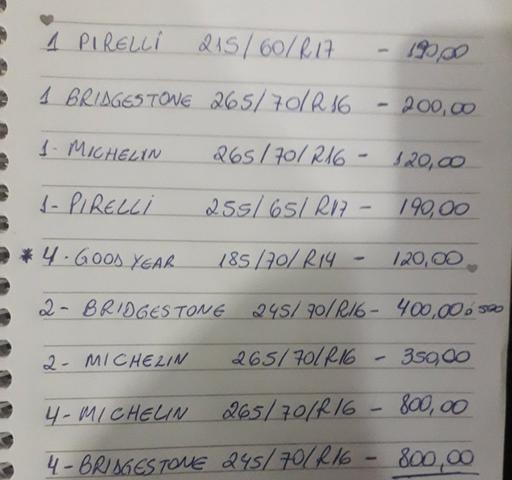 1 PIRELLI 215/60/R17 - 190,00
1 BRIDGESTONE 265/70/R16 - 200,00
1- MICHELIN 265/70/R16 - 120,00
1- PIRELLI 255/65/R17 - 190,00
* 4- GOOD YEAR 185/70/R14 - 120,00
2- BRIDGESTONE 245/70/R16 - 400,00 ó 500
2- MICHELIN 265/70/R16 - 350,00
4- MICHELIN 265/70/R16 - 800,00
4- BRIDGESTONE 245/70/R16 - 800,00